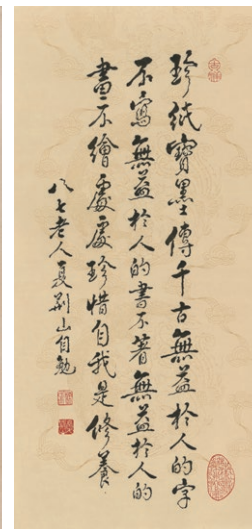 珍紙寶墨傳千古無益於人的字
不寫無益於人的書不著無益於人的
畫不繪處處珍惜自我是修養
八七老人夏荆山自勉